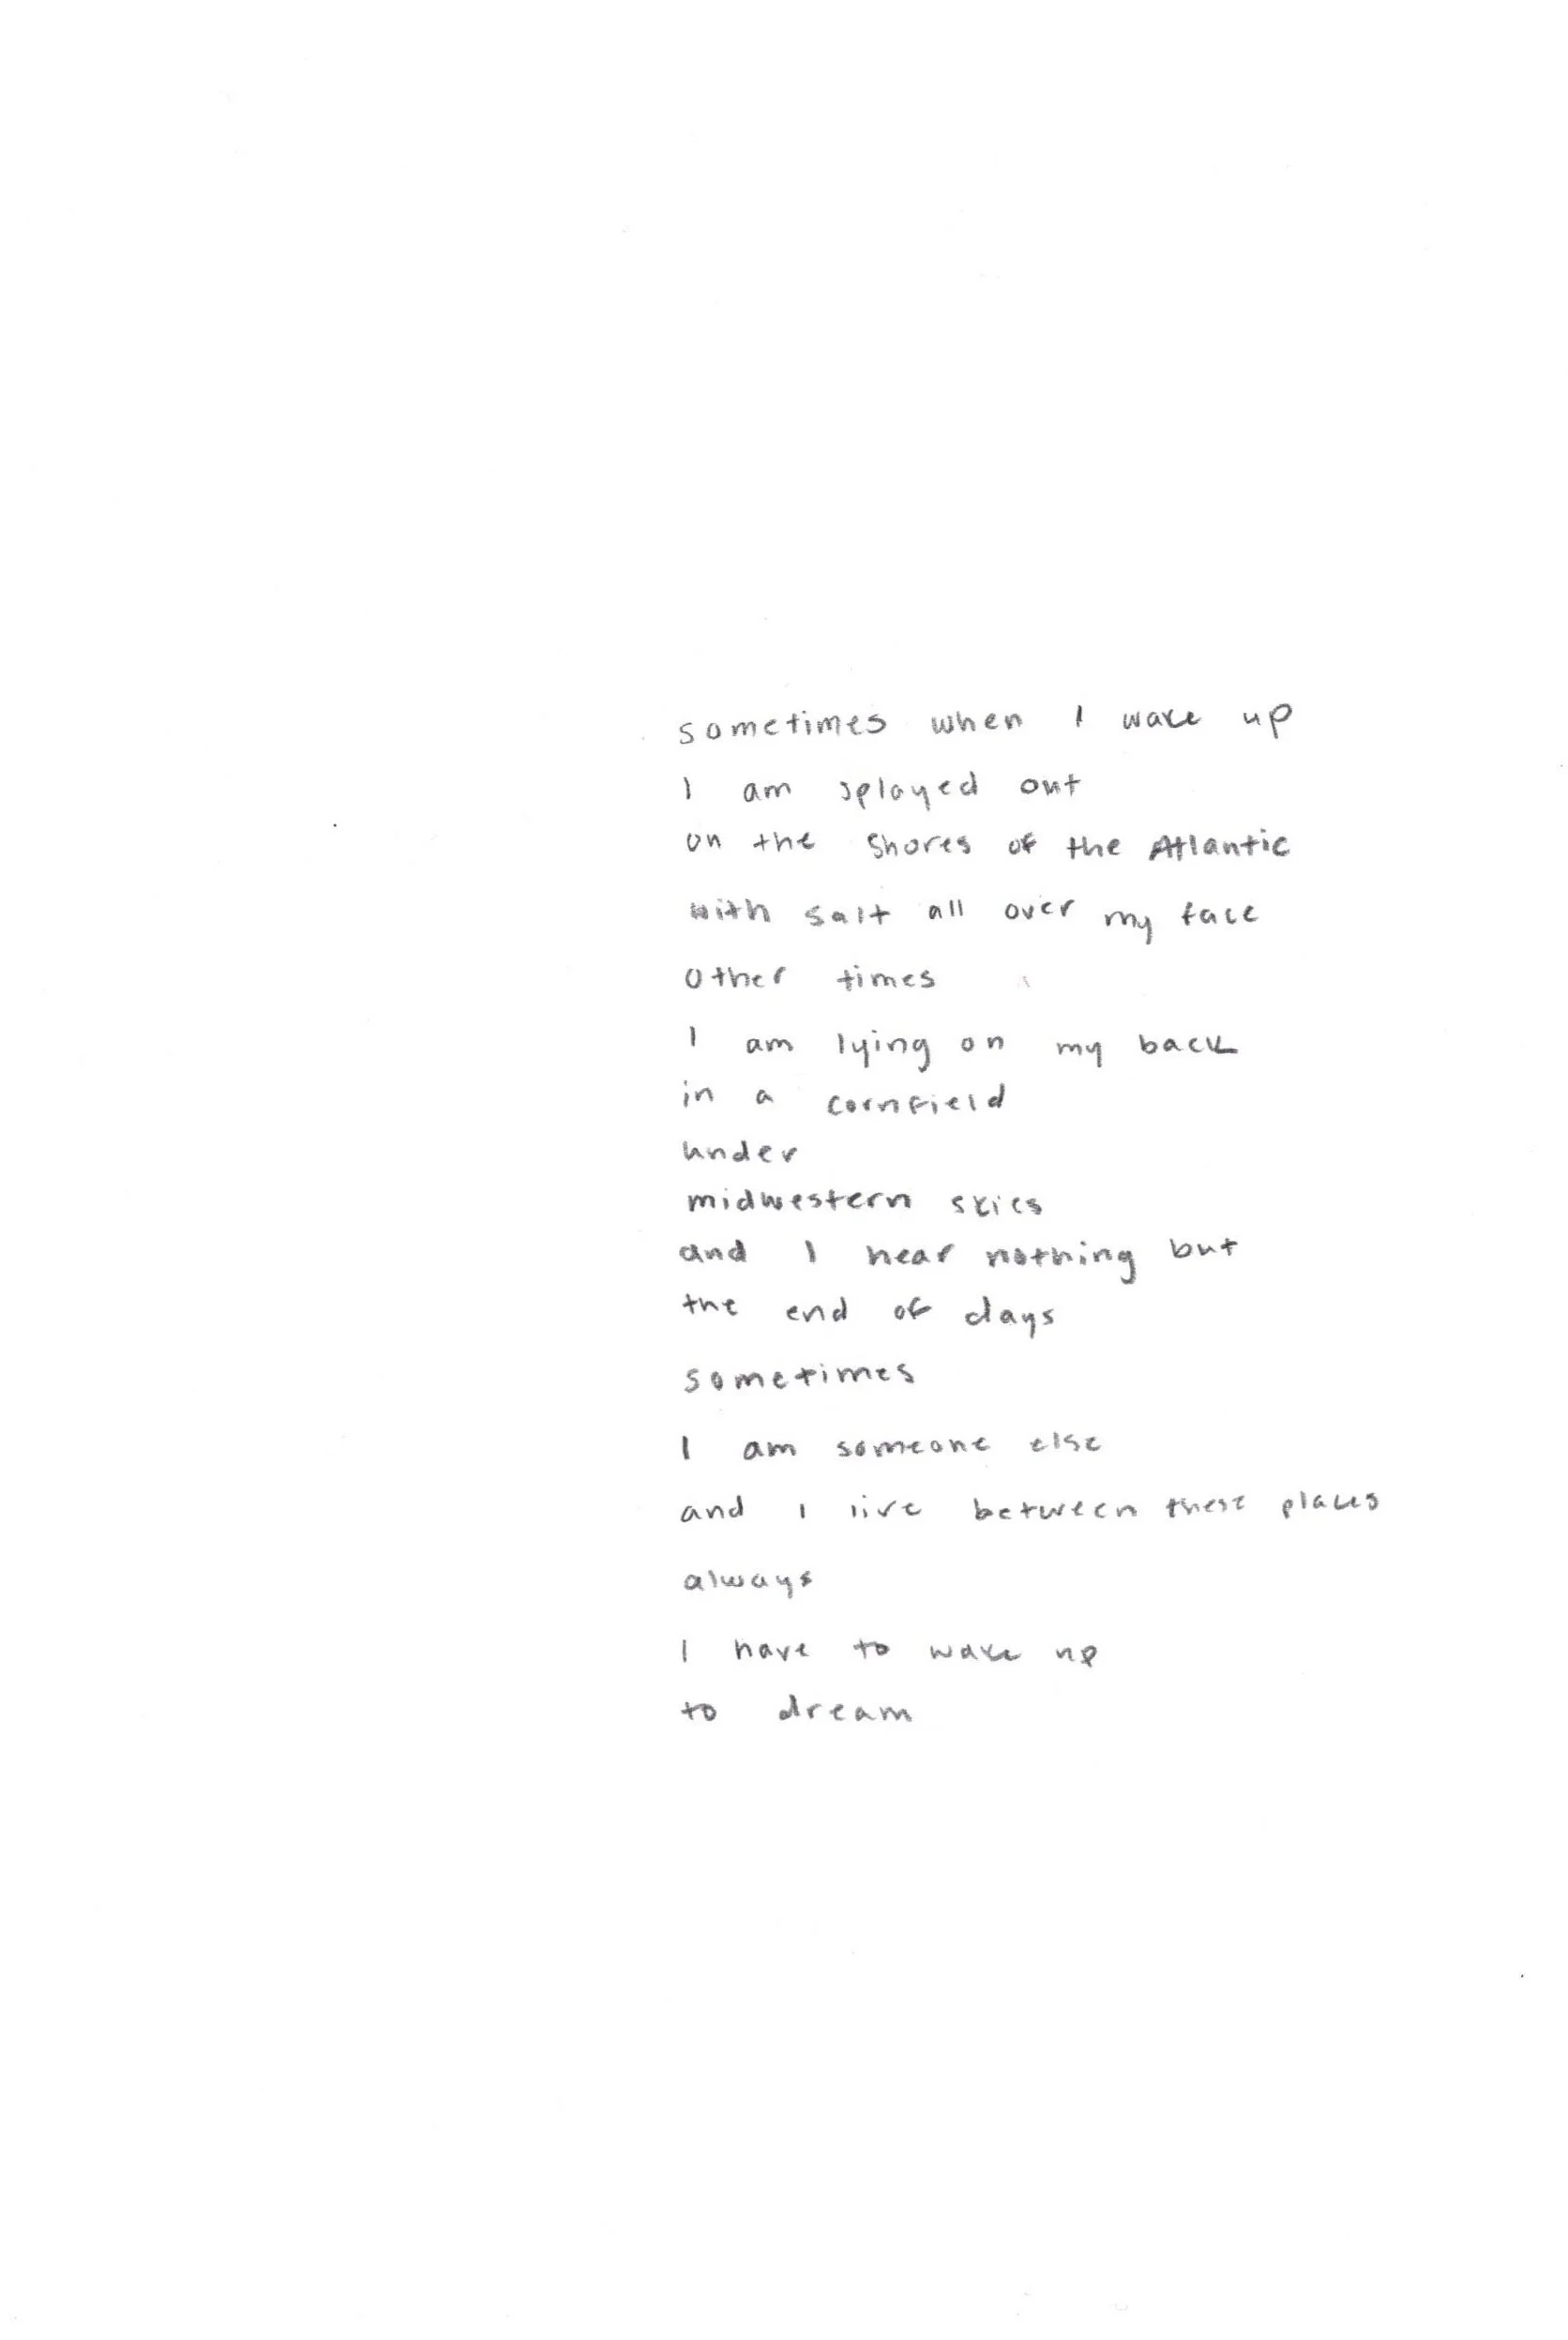 sometimes when I wake up
I am splayed out
on the shores of the Atlantic
with salt all over my face
other times
I am lying on my back
in a cornfield
under
midwestern skies
and I hear nothing but
the end of days
sometimes
I am someone else
and I live between these places
always
I have to wake up
to dream